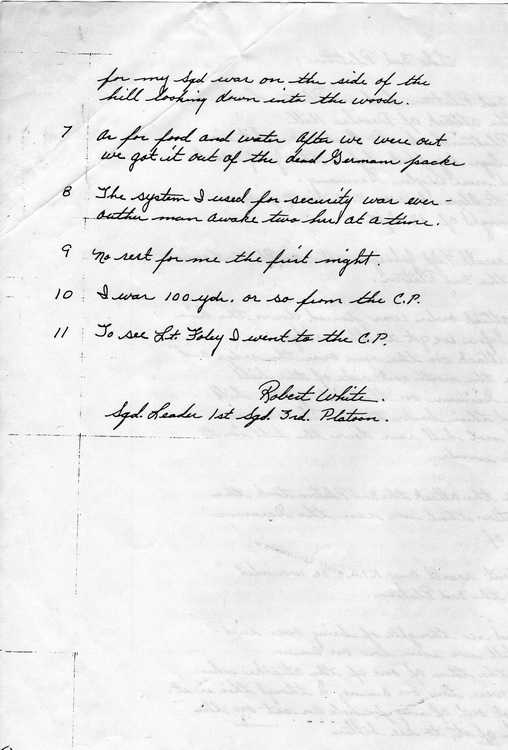 for my Sqd was on the side of the
hill looking down into the woods.
7 As for food and water After we were out
we got it out of the dead Germans packs
8 The system I used for security was ever-
outher man awake two hrs at a time.
9 No rest for me the first night.
10 I was 100 yds. or so from the C.P.
11 To see Lt. Foley I went to the C.P.
Robert White.
Sqd. Leader 1st Sqd. 3rd. Platoon.